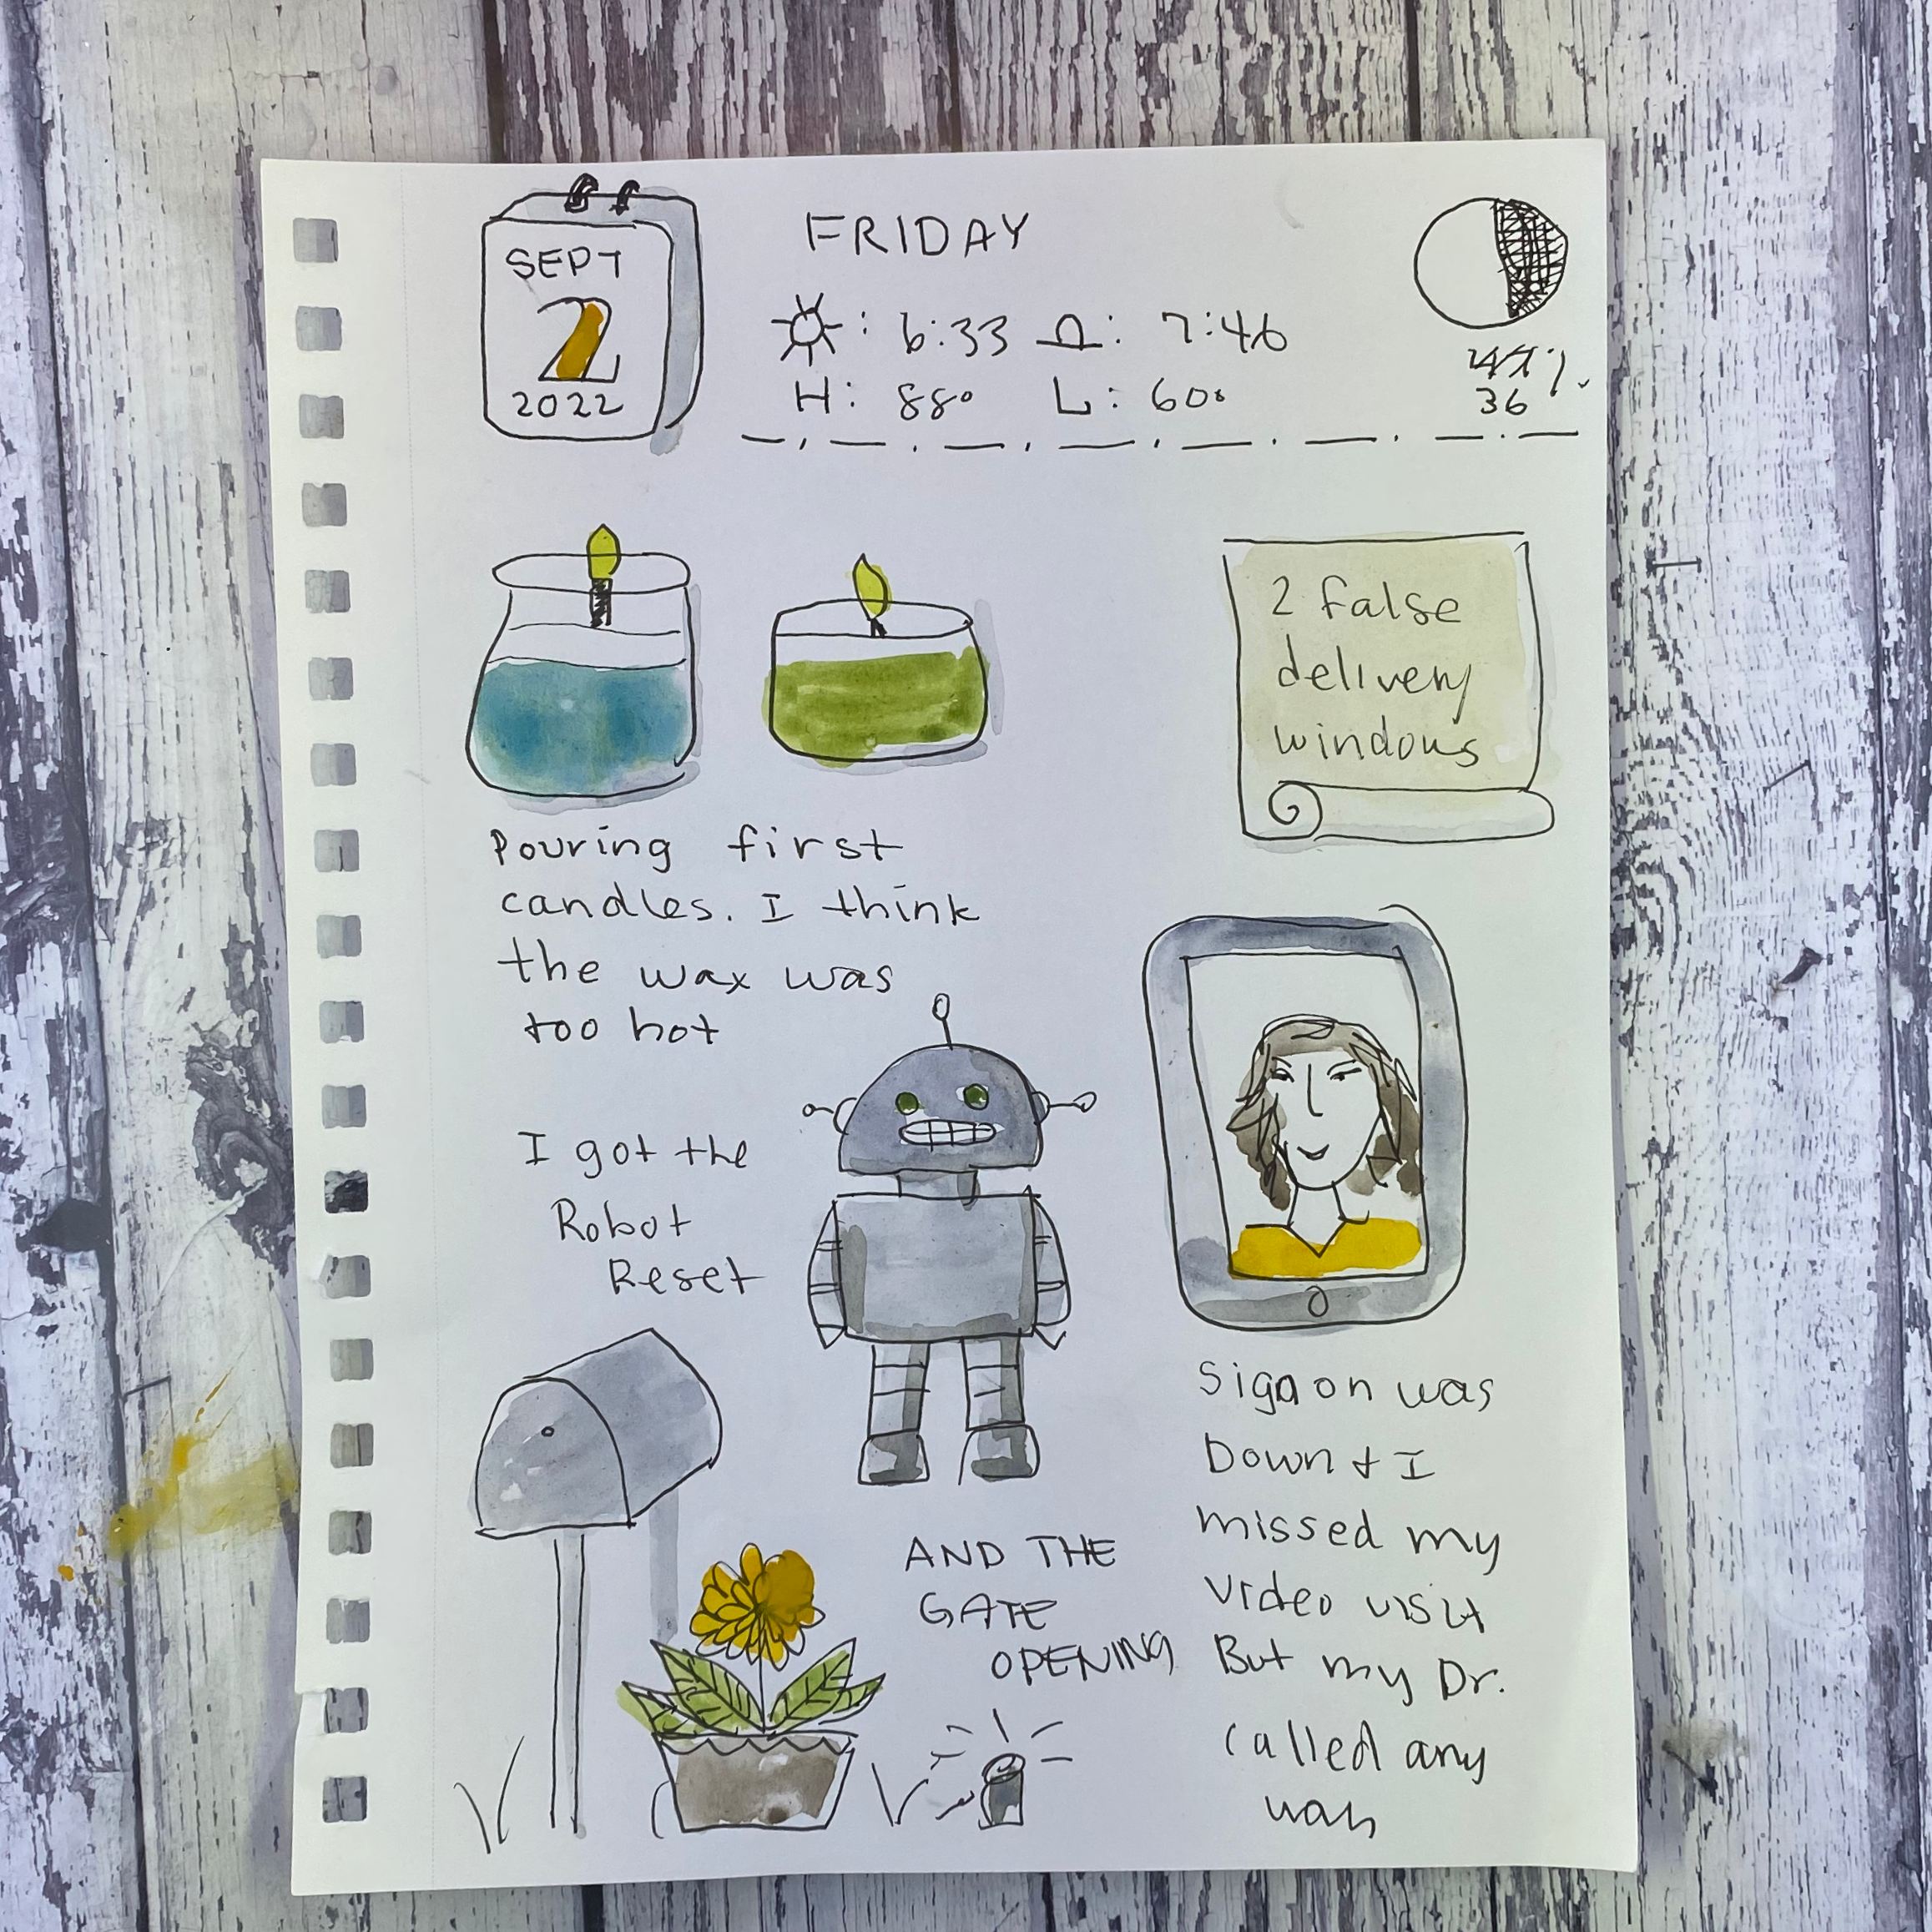 SEPT
2
2022
FRIDAY
: 6:33 : 7:46
H: 88° L: 60°
47%
36
2 false
delivery
windows
Pouring first
candles. I think
the wax was
too hot
I got the
Robot
Reset
AND THE
GATE
OPENING
Sign on was
Down + I
missed my
video visit
But my Dr.
called any
way